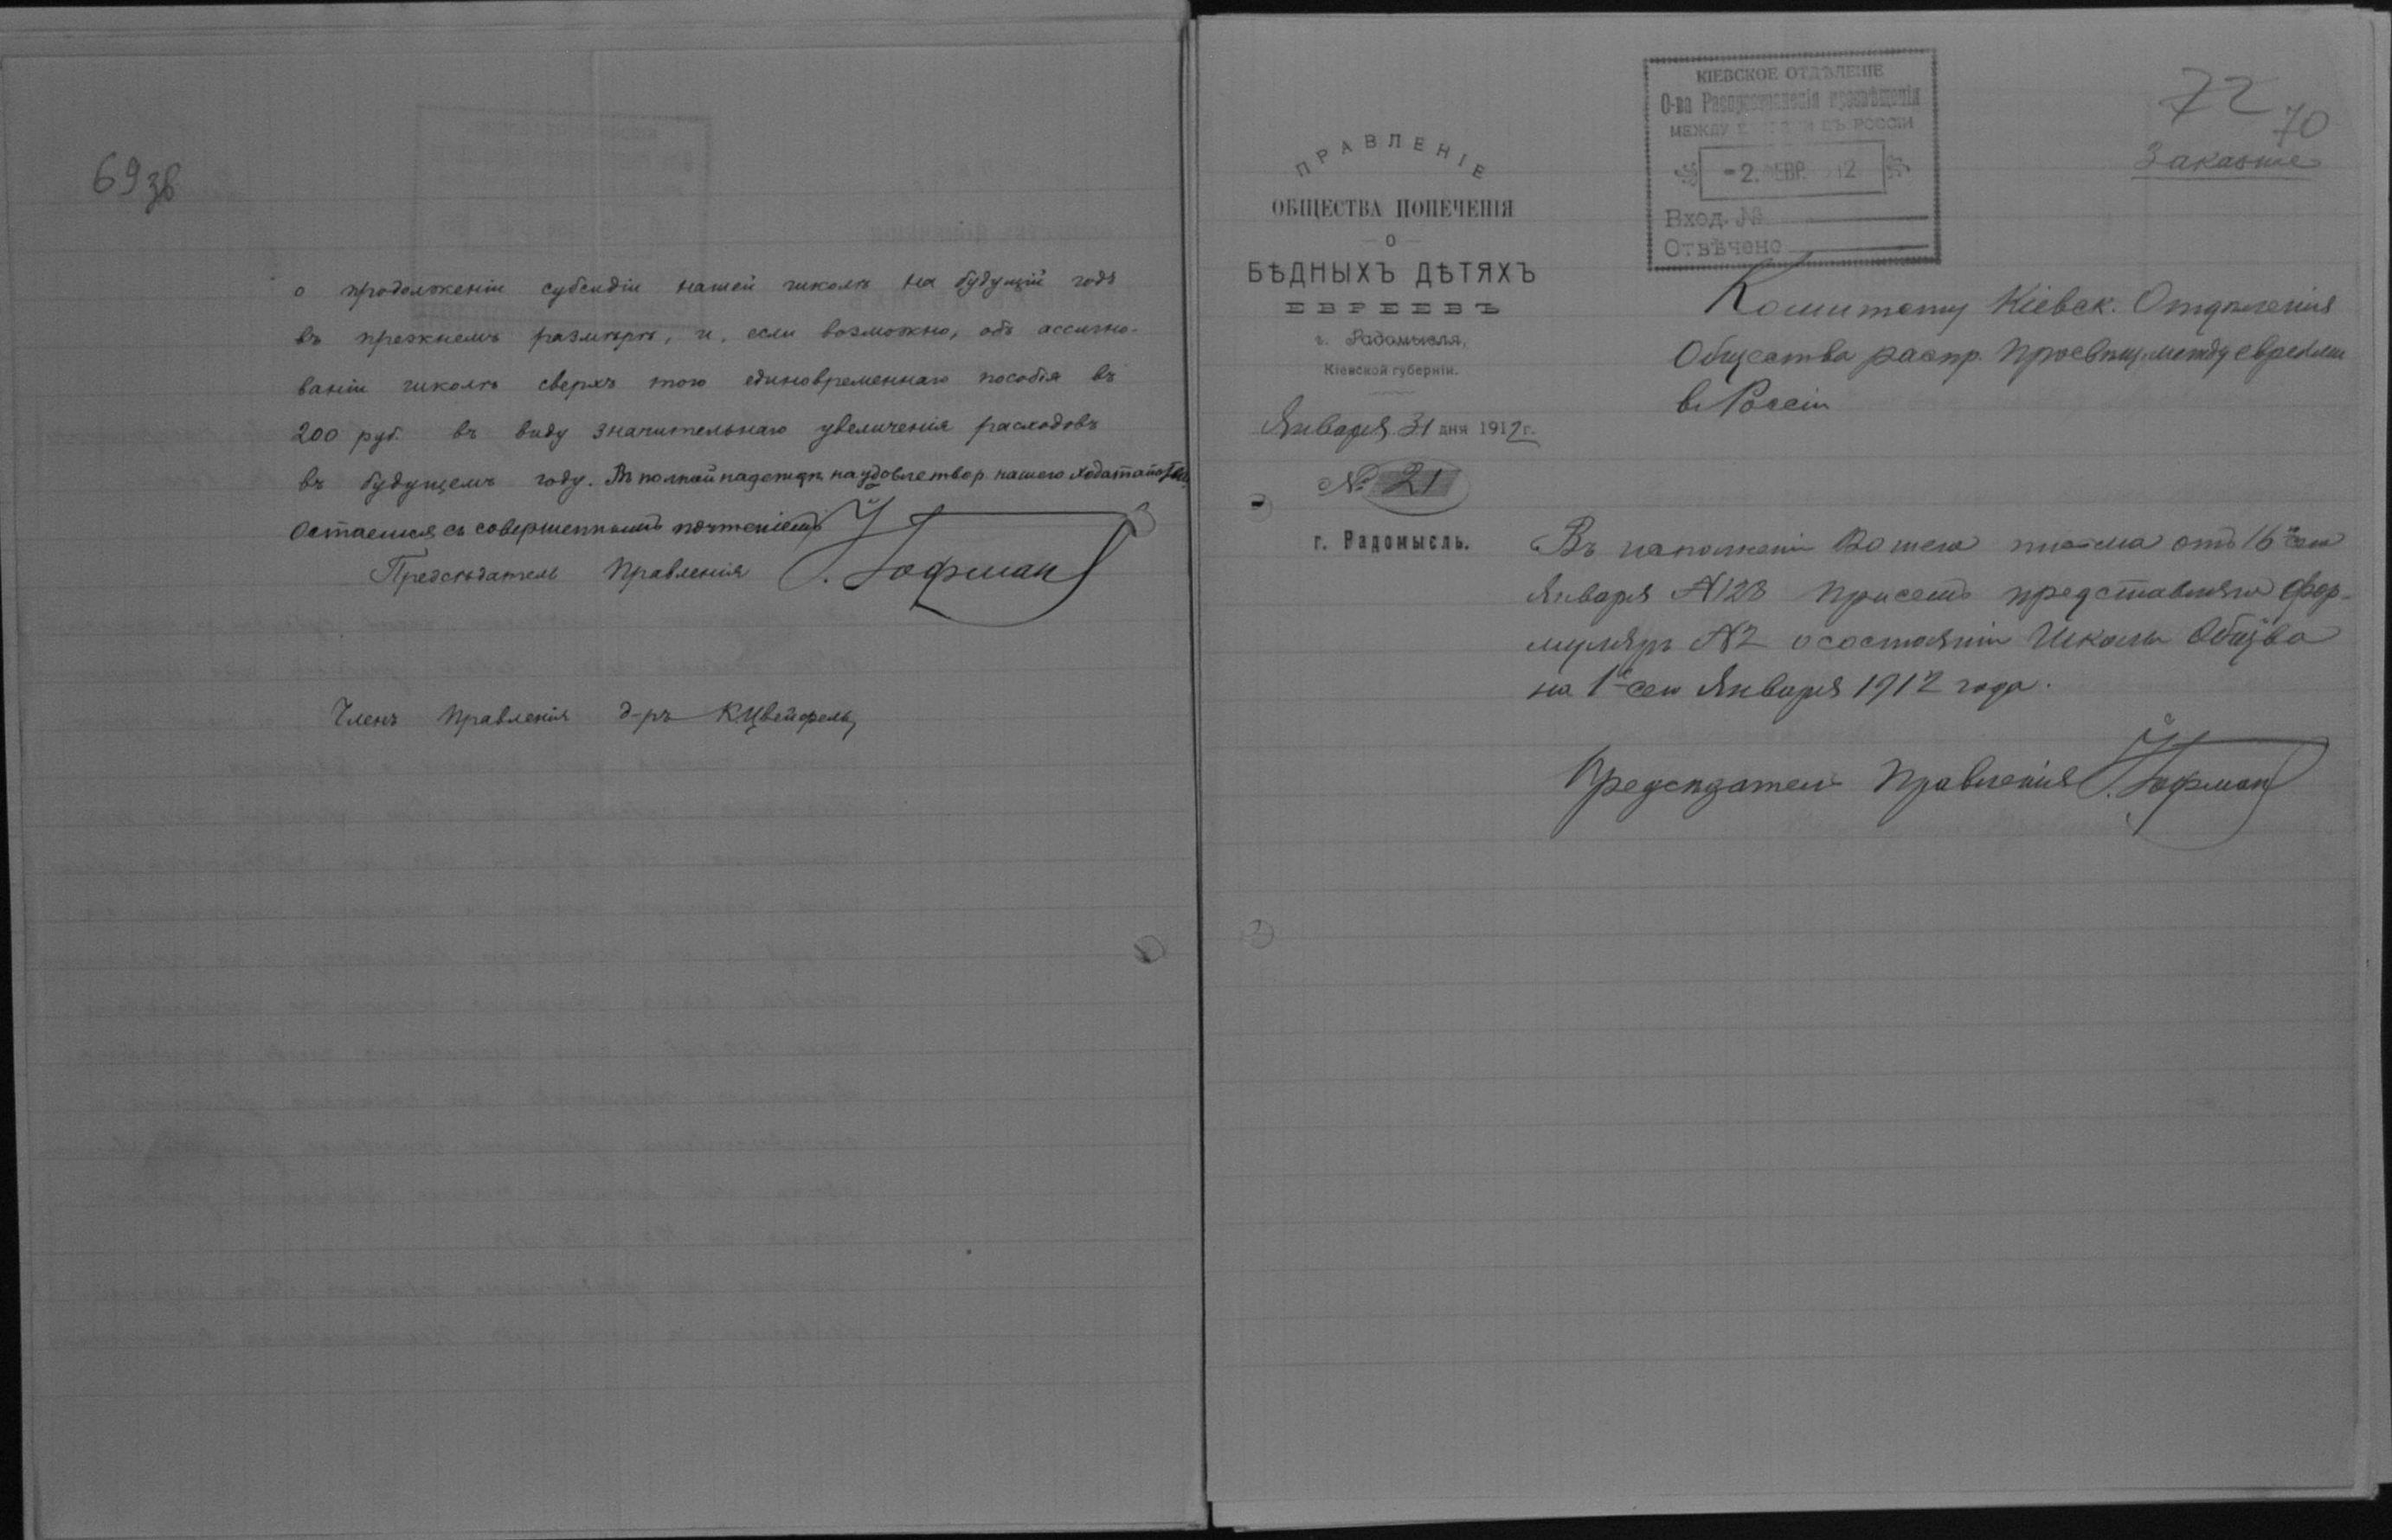 69 зв
о продолженіи субсидіи нашей школѣ на будущій годъ
въ прежнемъ размѣрѣ, и, если возможно, объ ассигно-
ваніи школѣ сверхъ того единовременнаго пособія въ
200 руб. въ виду значительнаго увеличенія расходовъ
въ будущемъ году. Въ полной надеждѣ на удовлетвор. нашего ходатайства
Остаемся съ совершеннымъ почтеніемъ
Предсѣдатель Правленія Гофман
Членъ Правленія д-ръ К. Цвейфель
ПРАВЛЕНІЕ
ОБЩЕСТВА ПОПЕЧЕНІЯ
О
БѢДНЫХЪ ДѢТЯХЪ
ЕВРЕЕВЪ
г. Радомысля,
Кіевской губерніи.
Января 31 дня 1912 г.
№ 21
г. Радомысль.
КІЕВСКОЕ ОТДѢЛЕНІЕ
О-ва Распространенія просвѣщенія
МЕЖДУ ЕВРЕЯМИ ВЪ РОССІИ
- 2. ФЕВР. 1912
Вход. №
Отвѣчено
72
70
Заказное
Комитету Кіевск. Отдѣленія
Общества распр. просвѣщ. между евреями
в Россіи
Въ исполненіи Вашего письма отъ 16го сего
Января №128 присемъ представляю фор-
муляръ №2 о состояніи Школы Общ-ва
на 1е сего Января 1912 года.
Предсѣдатель Правленія Гофман